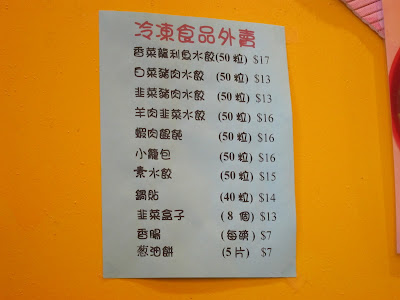 冷凍食品外賣
香菜龍利魚水餃(50 粒) $17
白菜豬肉水餃 (50 粒) $13
韭菜豬肉水餃 (50 粒) $13
羊肉韭菜水餃 (50 粒) $16
蝦肉餛飩 (50 粒) $16
小籠包 (50 粒) $16
素水餃 (50 粒) $15
鍋貼 (40 粒) $14
韭菜盒子 ( 8 個) $13
香腸 ( 每磅 ) $7
葱油餅 ( 5 片 ) $7